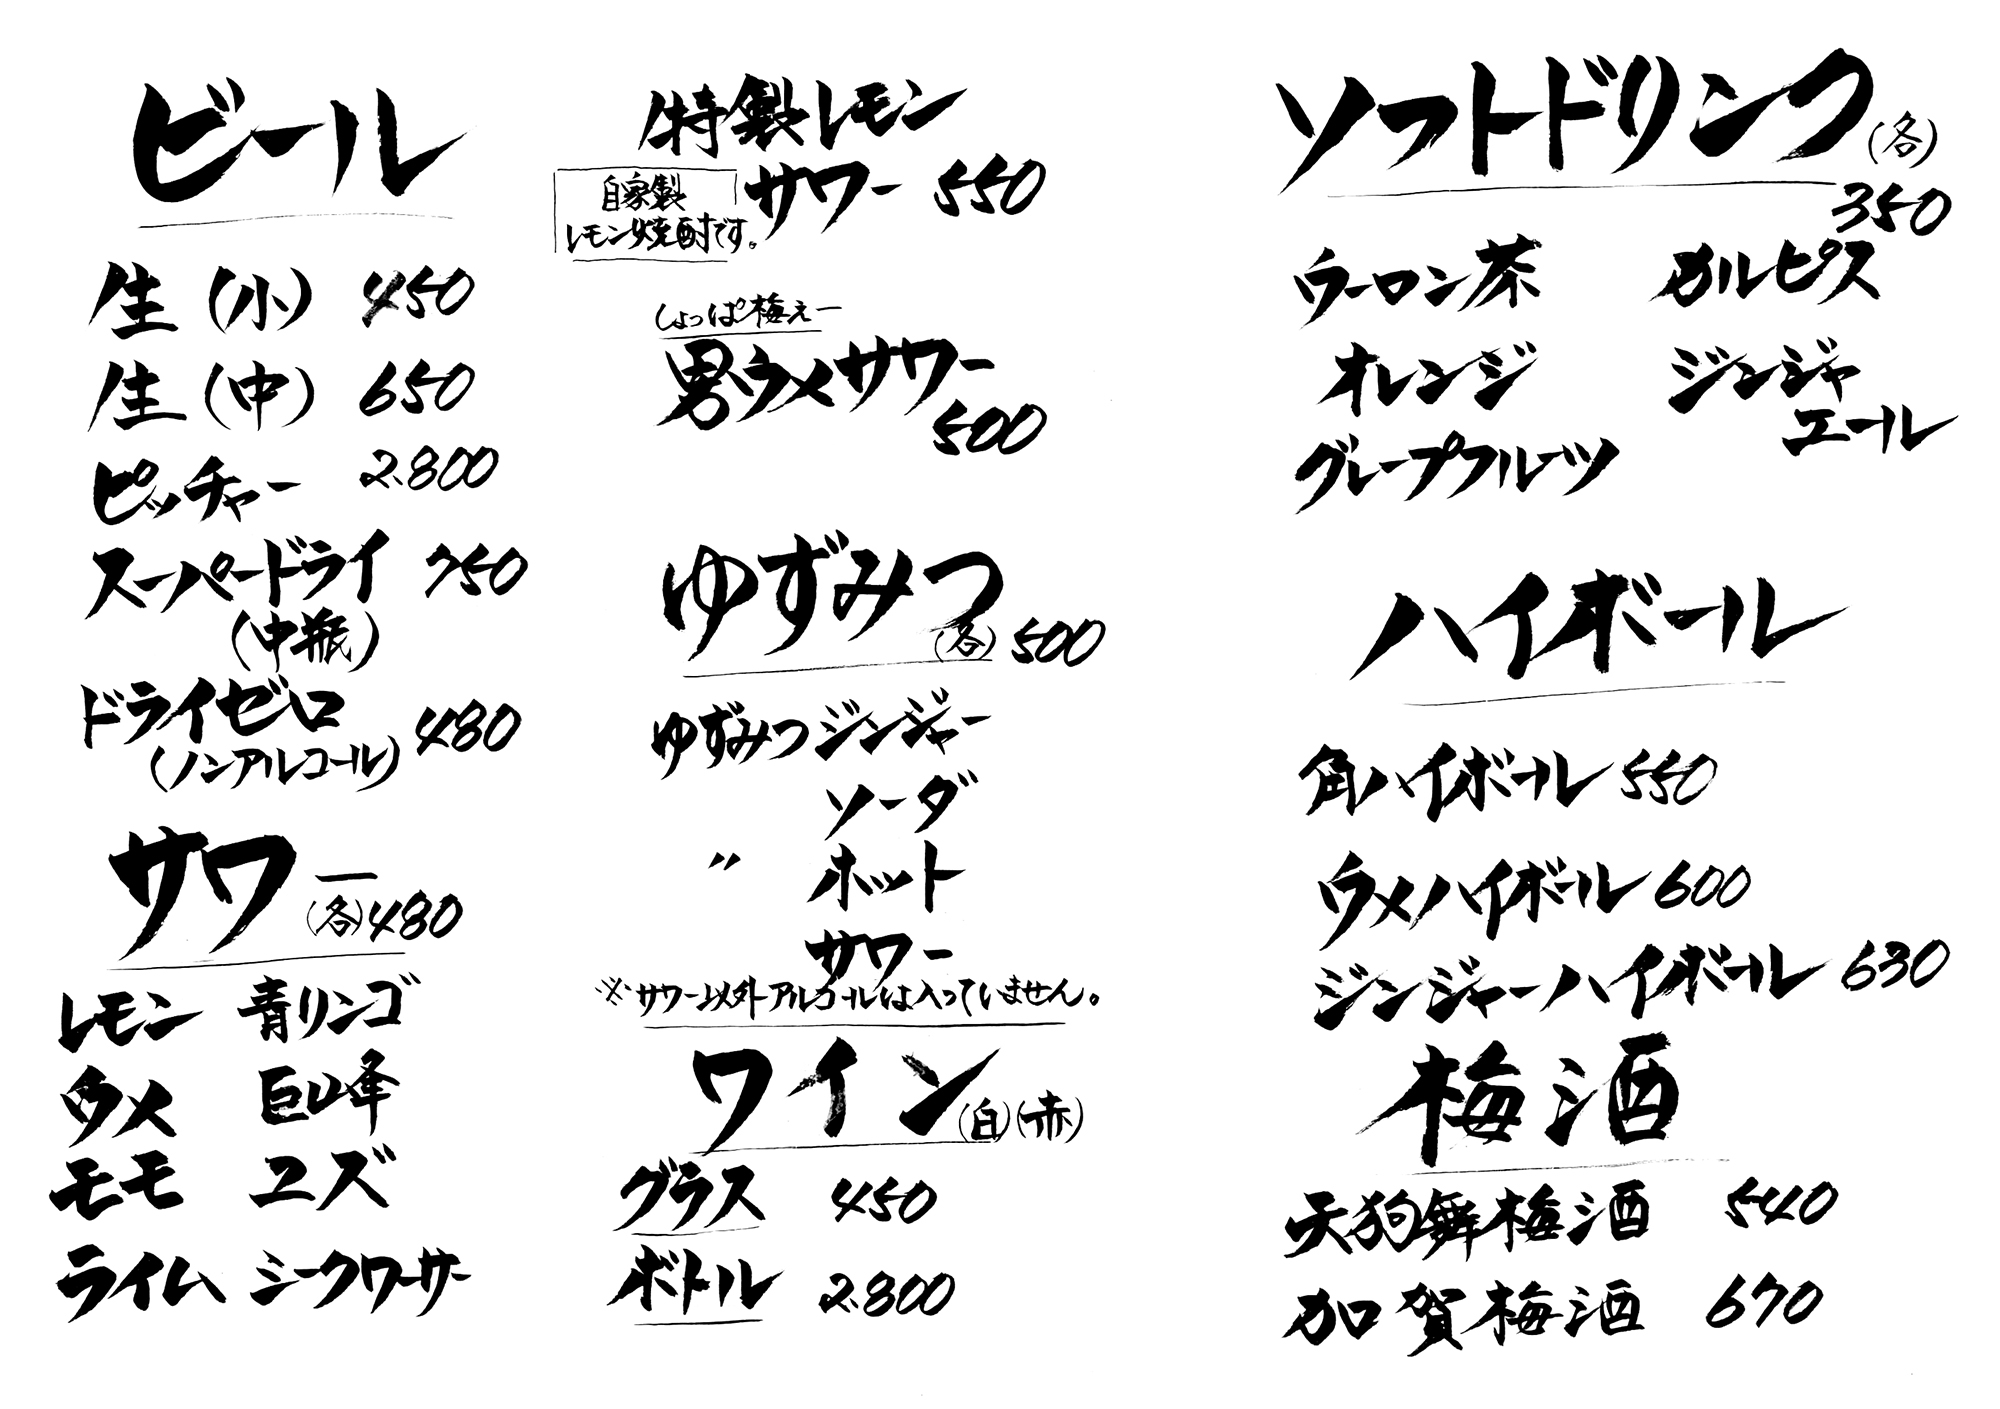 ビール
生(小) 450
生(中) 650
ピッチャー 2.800
スーパードライ 750
(中瓶)
ドライゼロ 480
(ノンアルコール)
サワー
(各)480
レモン 青リンゴ
ウメ 巨峰
モモ ユズ
ライム シークワーサー
特製レモン
サワー 550
自家製
レモン焼酎です。
しょっぱ梅ぇー
男ウメサワー
500
ゆずみつ
(各) 500
ゆずみつジンジャー
ソーダ
〃 ホット
サワー
※サワー以外アルコールは入っていません。
ワイン(白)(赤)
グラス 450
ボトル 2.800
ソフトドリンク(各)
350
ウーロン茶 カルピス
オレンジ ジンジャ
エール
グレープフルーツ
ハイボール
角ハイボール 550
ウメハイボール 600
ジンジャーハイボール 630
梅酒
天狗舞梅酒 540
加賀梅酒 670